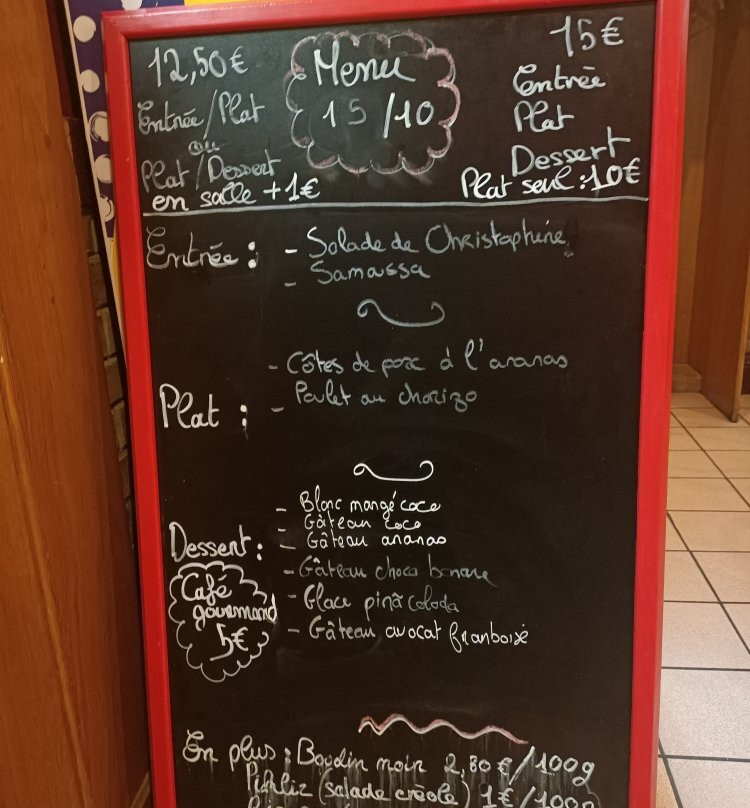 12,50€
Entrée/Plat
ou
Plat/Dessert
en salle +1€
Menu
15/10
15€
Entrée
Plat
Dessert
Plat seul : 10€
Entrée : - Salade de Christophine
- Samassa
- Côtes de porc à l'ananas
Plat : - Poulet au chorizo
- Blanc mangé coco
- Gâteau coco
Dessert : - Gâteau ananas
- Gâteau choco banane
- Glace pinã colada
- Gâteau avocat framboise
Café
gourmand
5€
En plus : Boudin noir 2,80€/100g
Pikliz (salade créole) 1€/100g